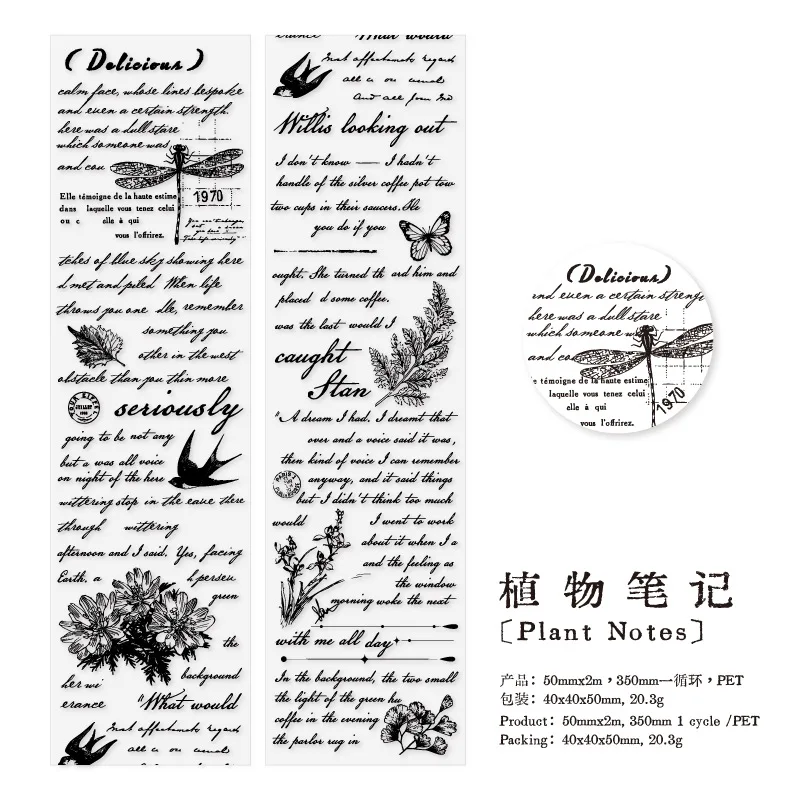 (Delicious)
calm face, whose lines bespoke
and even a certain strength.
here was a dull stare
which someone was
and cou
Elle témoigne de la haute estime
dans laquelle vous tenez celui
ou c elle à qui
vous l'offrirez.
1970
tches of blue sky showing here
d met and piled When life
throws you one dle, remember
something you
other in the west
obstacle than you thin more
seriously
going to be not any
but a was all voice
on night of the here
wittering stop in the eave there
through wittering
afternoon and I said. Yes, facing
Earth, a h persev
green
the
her wi background
erance "What would
that affectionate regard
all is on usual
What would
that affectionate regard
all is on usual
and all from the
Willis looking out
I don't know — I hadn't
handle of the silver coffee pot tow
two cups in their saucers. He
you do if you
ought. She turned th ard him and
placed d some coffee.
was the last would I
caught
Stan
"A dream I had. I dreamt that
over and a voice said it was,
then kind of voice I can remember
anyway, and it said things
PARIS
but I didn't think too much
would I went to work
about it when I a
and the feeling as
the window
morning woke the next
with me all day
In the background, the two small
the light of the green hu
coffee in the evening
the parlor rug in
(Delicious)
and even a certain streng
here was a dull stare
which someone w
and co
e témoigne de la haute estime
laquelle vous tenez celui
elle à qui
vous l'offrirez.
1970
植物笔记
[Plant Notes]
产品：50mmx2m，350mm一循环，PET
包装：40x40x50mm, 20.3g
Product: 50mmx2m, 350mm 1 cycle /PET
Packing: 40x40x50mm, 20.3g